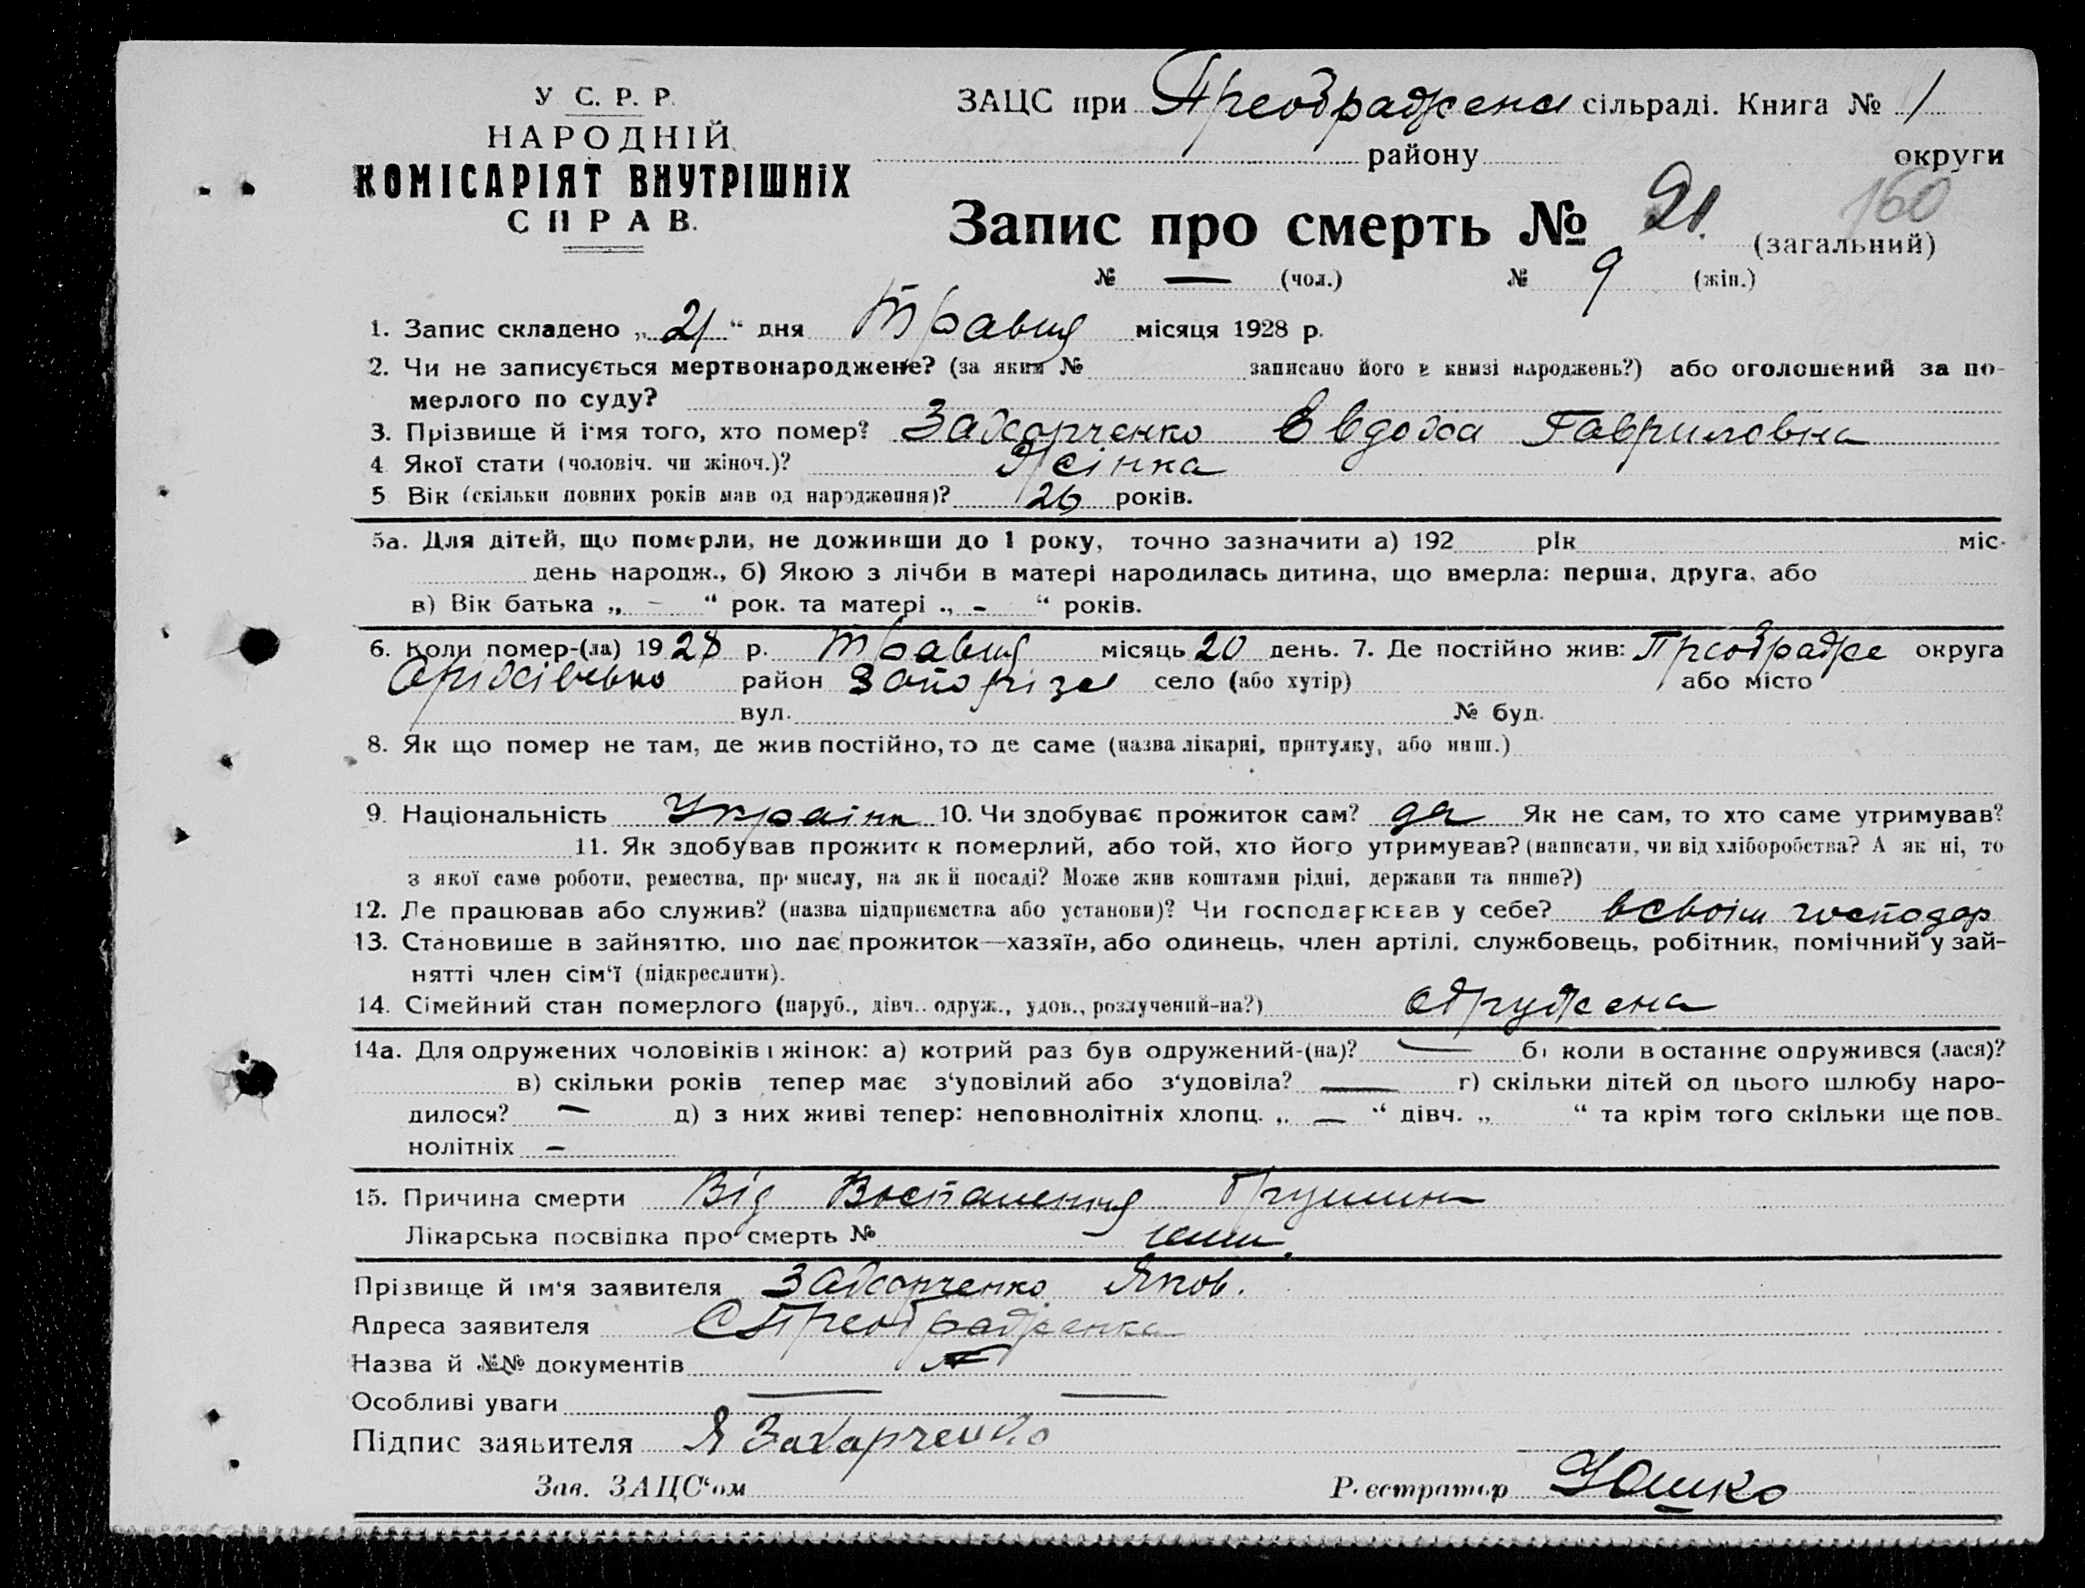 У С. Р. Р.
НАРОДНІЙ
КОМІСАРІЯТ ВНУТРІШНіХ
СПРАВ.
ЗАЦС при Преображенс сільраді. Книга № 1
району округи
160
Запис про смерть № 21. (загальний)
№ — (чол.) № 9 (жін.)
1. Запис складено „ 21 “ дня Травня місяця 1928 р.
2. Чи не записується мертвонароджене? (за яким № записано його в книзі народжень?) або оголошений за по-
мерлого по суду?
3. Прізвище й ім'я того, хто помер? Захорченко Евдоха Гавриловна
4 Якої стати (чоловіч. чи жіноч.)? Жінка
5 Вік (скільки повних років мав од народження)? 26 років.
5а. Для дітей, що померли, не доживши до 1 року, точно зазначити а) 192 рік міс-
день народж., б) Якою з лічби в матері народилась дитина, що вмерла: перша, друга, або
в) Вік батька „ - “ рок. та матері „ - “ років.
6. Коли помер-(ла) 1928 р. Травня місяць 20 день. 7. Де постійно жив: Преображе округа
Оріхівсько район Запоріз село (або хутір) або місто
вул. № буд.
8. Як що помер не там, де жив постійно, то де саме (назва лікарні, притулку, або инш.)
9. Національність Україн 10. Чи здобуває прожиток сам? да Як не сам, то хто саме утримував?
11. Як здобував прожиток померлий, або той, хто його утримував? (написати, чи від хліборобства? А як ні, то
з якої саме роботи, ремества, промислу, на якій посаді? Може жив коштами рідні, держави та инше?)
12. Де працював або служив? (назва підприємства або установи)? Чи господарював у себе? в своім господар
13. Становище в зайняттю, що дає прожиток—хазяїн, або одинець, член артілі, службовець, робітник, помічний у зай-
нятті член сім'ї (підкреслити).
14. Сімейний стан померлого (паруб., дівч. одруж., удов., розлучений-на?) одружена
14а. Для одружених чоловіків і жінок: а) котрий раз був одружений-(на)? — б) коли в останнє одружився (лася)?
в) скільки років тепер має з'удовілий або з'удовіла? — г) скільки дітей од цього шлюбу наро-
дилося? — д) з них живі тепер: неповнолітніх хлопц. „ — “ дівч. „ “ та крім того скільки ще пов-
нолітніх —
15. Причина смерти Від Воспалення
Лікарська посвідка про смерть №
Прізвище й ім'я заявителя Захорченко Яков.
Адреса заявителя С Преображенка
Назва й №№ документів
Особливі уваги — —
Підпис заявителя Я Захарченко
Зав. ЗАЦС'ом Реєстратор Юшко